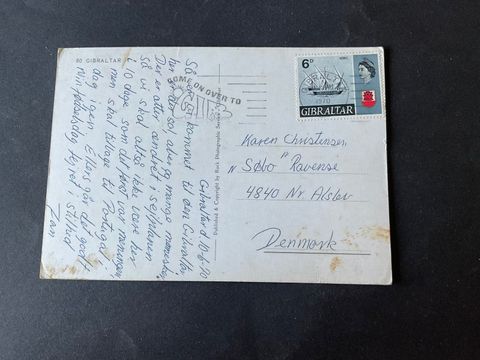 80 GIBRALTAR
COME ON OVER TO
6D
GIBRALTAR
GIBRALTAR
1970
Published & Copyright by Rock Photographic Service Gibraltar
Gibraltar d. 10-6-70
Så er vi kommet til den Gibraltar,
her er der sol aber og mange mennesker
Der er atter ændret i sejlplanen
Så vi skal altså ikke være her
i 10 dage som det først var meningen
men skal tilbage til Portugal
dag igen. Ellers går det godt
min fødselsdag fejret i stilhed
Jan
Karen Christensen
"Søbo" Ravense
4840 Nr. Alslev
Denmark